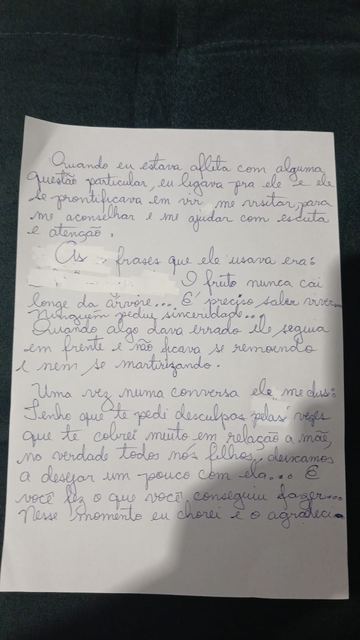 Quando eu estava aflita com alguma
questão particular, eu ligava pra ele e ele
se prontificava em vir me visitar para
me aconselhar e me ajudar com escuta
e atenção.
As frases que ele usava era:
O fruto nunca cai
longe da árvore... É preciso saber viver...
Ninguém pediu sinceridade...
Quando algo dava errado ele seguia
em frente e não ficava se remoendo
e nem se martirizando.
Uma vez numa conversa ele me diss:
Tenho que te pedi desculpas pelas vezes
que te cobrei muito em relação a mãe,
no verdade todos nós filhos, deixamos
a desejar um pouco com ela... E
você fez o que você conseguiu fazer...
Nesse momento eu chorei e o agradeci.